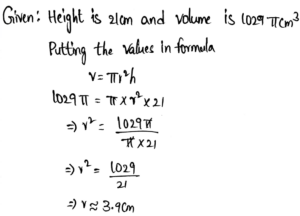 Given: Height is 21cm and volume is 1029 πcm³
Putting the values in formula
v = πr²h
1029π = π × r² × 21
⇒ r² = 1029π / π × 21
⇒ r² = 1029 / 21
⇒ r ≈ 3.9cm